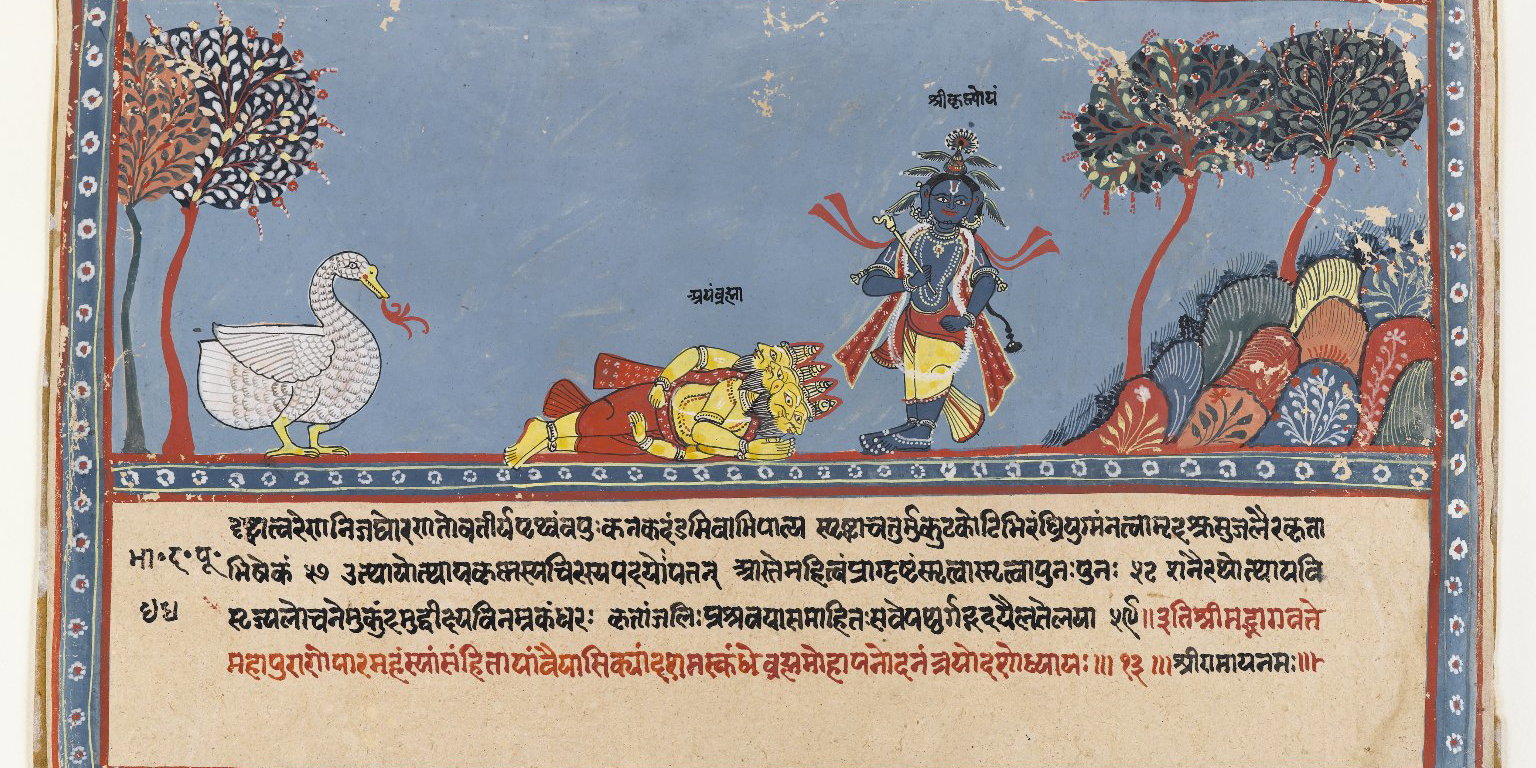 श्रीकृष्णोयं
अयंब्रह्मा
दृष्ट्वात्वरेणनिजधोरणतोवतीर्यपृथ्व्यांवपुःकनकदंडमिवाभिपात्य स्पृष्ट्वाचतुर्मुकुटकोटिभिरंघ्रियुग्मंनत्वामुदश्रुसुजलैरकृता
भा॰द॰पू॰
भिषेकं ५७ उत्थायोत्थायकृष्णस्यचिरस्यपदयोःपतन् आस्तेमहित्वंप्राग्दृष्टंस्मृत्वास्मृत्वापुनःपुनः ५८ शनैरथोत्थायवि
मृज्यलोचनेमुकुंदमुद्वीक्ष्यविनम्रकंधरः कृतांजलिःप्रश्रवयासमाहितःसवेपथुर्गद्गदयैलतेलया ५९॥इतिश्रीमद्भागवते
महापुराणेपारमहंस्यांसंहितायांवैयासिक्यांदशमस्कंधेब्रह्ममोहापनोदनंत्रयोदशोध्यायः॥ १३ ॥श्रीरामायनमः॥